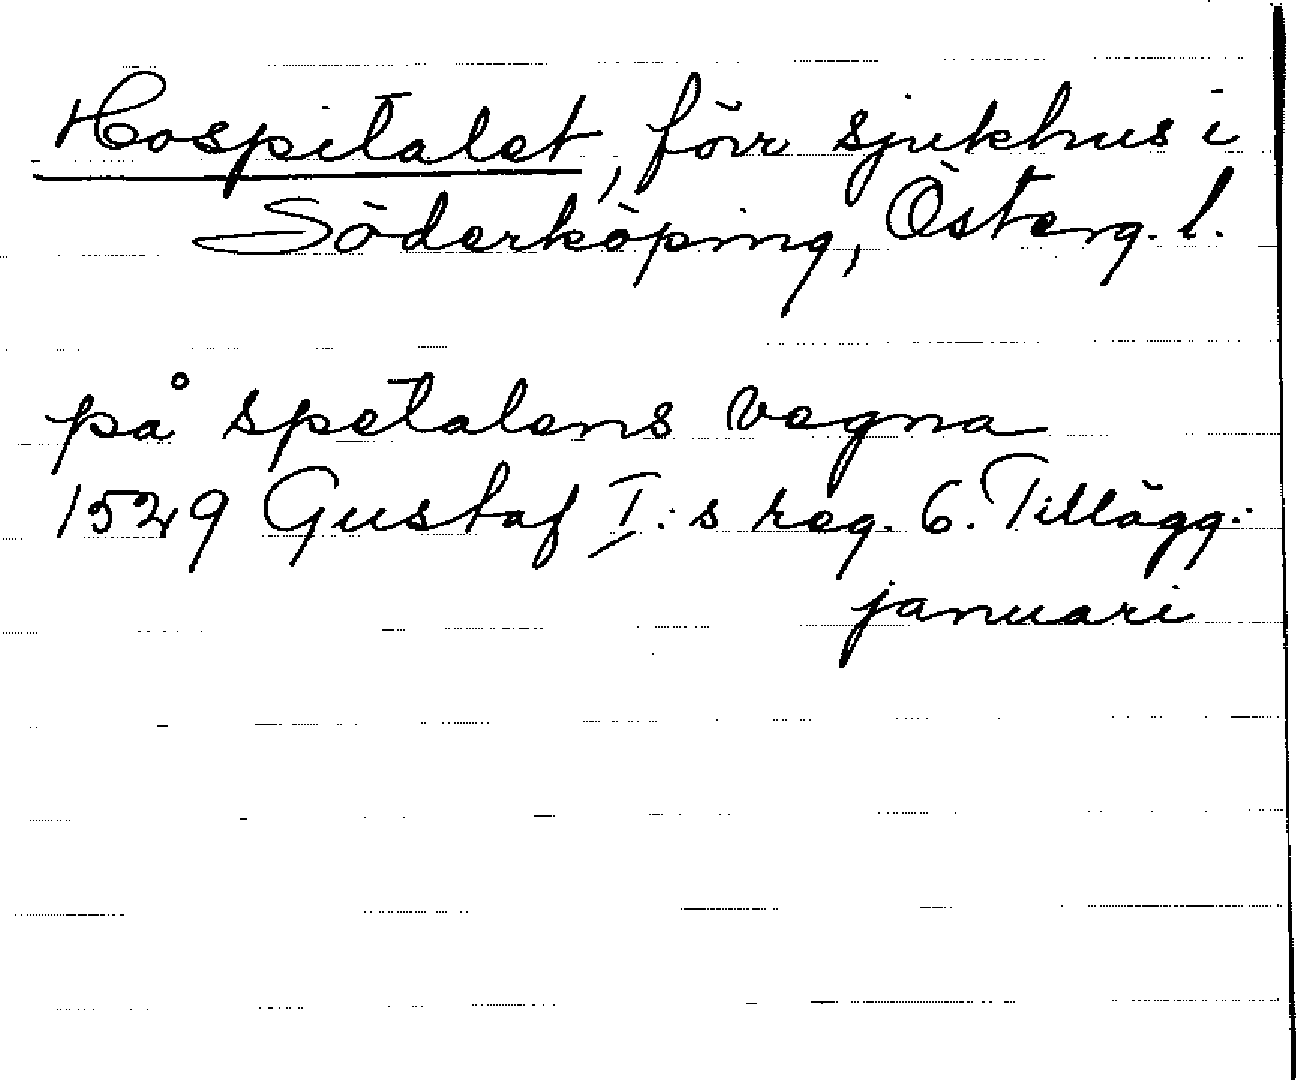 Hospitalet, förr sjukhus i
Söderköping, Österg. l.
på spetalens vegna
1529 Gustaf I:s reg. 6. Tillägg:
januari